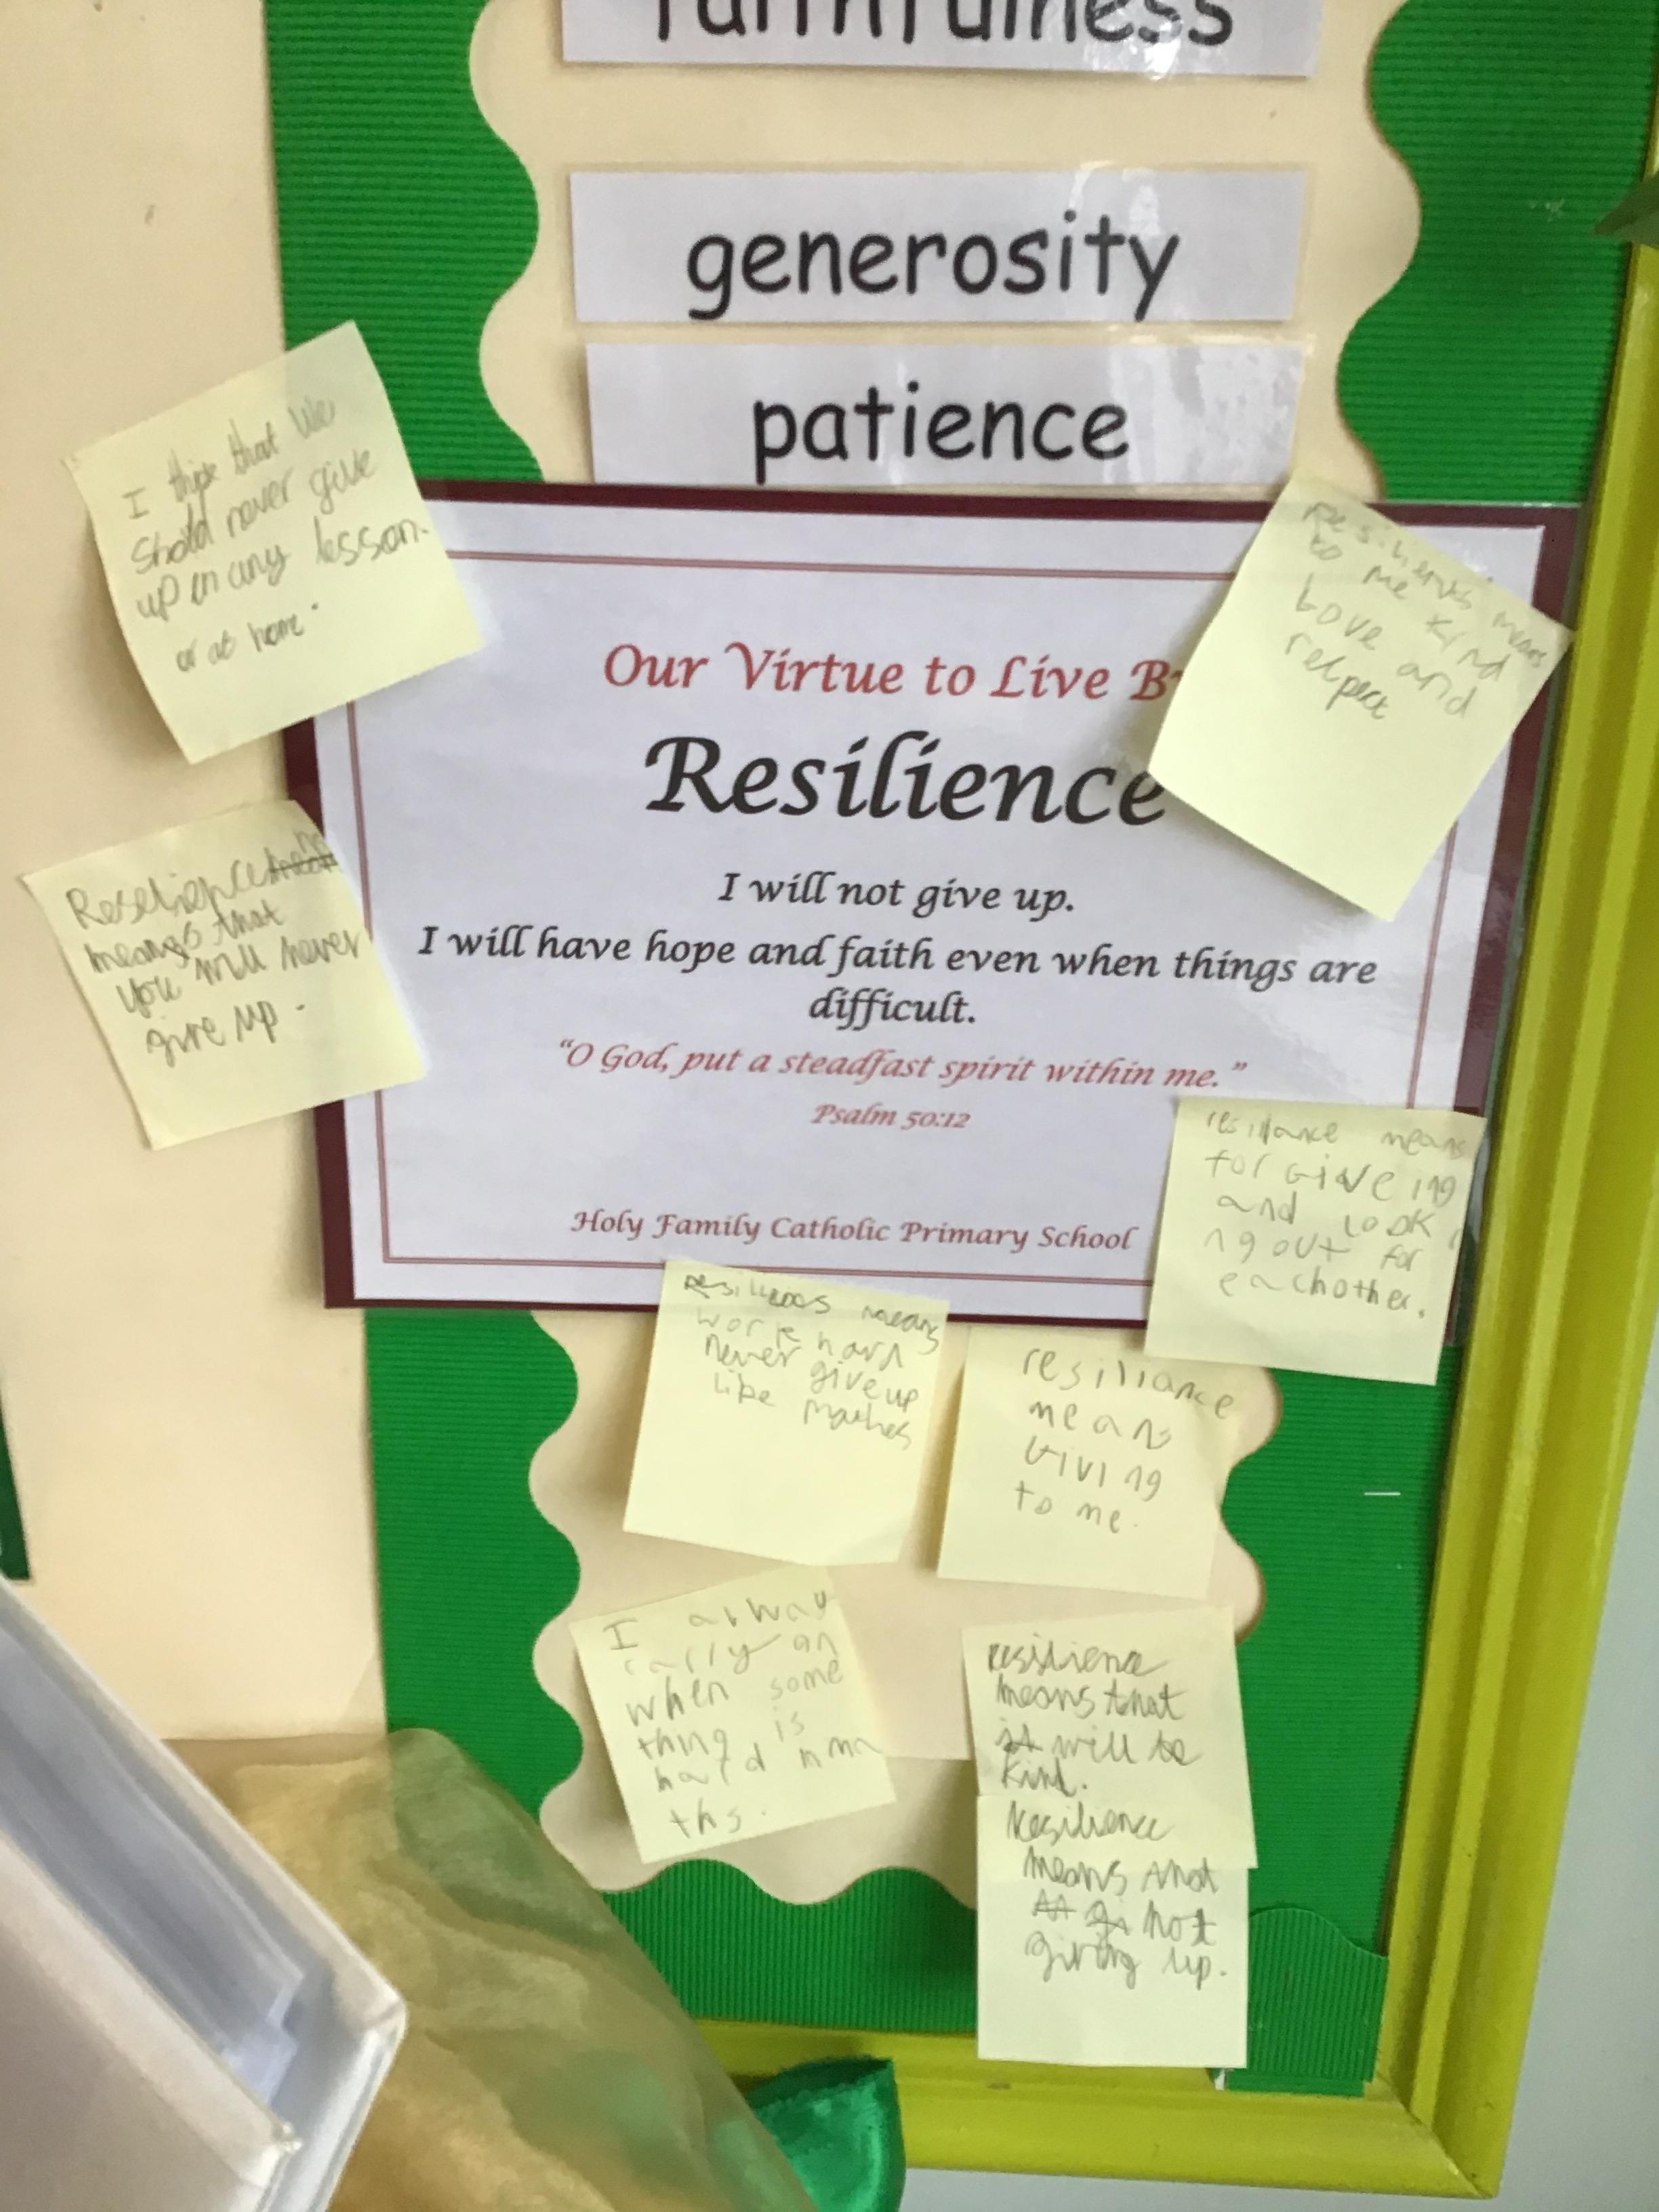 faithfulness
generosity
patience
I think that We
Shold never give
up in any lesson.
or at home.
means
to me kind
Love and
respect
Our Virtue to Live B
Resilience
I will not give up.
I will have hope and faith even when things are
difficult.
"O God, put a steadfast spirit within me."
Psalm 50:12
Holy Family Catholic Primary School
Reselience
means that
you will never
give up.
resiliance means
for Giveing
and look i
ng out for
eachother.
means
work hard
never give up
like
resiliance
means
Giving
to me.
I alway
carry on
when some
thing is
hard in ma
ths.
resilience
means that
it will be
kind.
Resilience
means that
not
giving up.